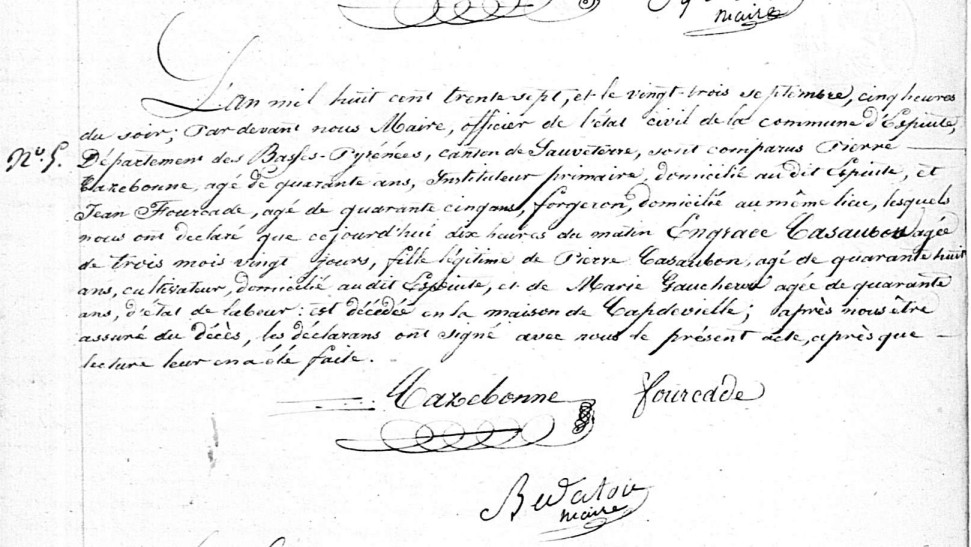 maire
L'an mil huit cent trente sept, et le vingt-trois septembre, cinq heures
du soir; Pardevant nous Maire, officier de l'état civil de la commune d'Espiute,
N.º 5. Département des Basses-Pyrénées, canton de Sauveterre, sont comparus Pierre
Cazebonne, agé de quarante ans, Instituteur primaire, domicilié audit Espiute, et
Jean Fourcade, agé de quarante cinq ans, forgeron, domicilié au même lieu, lesquels
nous ont déclaré que cejourd'hui dix heures du matin Engrace Casaubon agée
de trois mois vingt jours, fille légitime de Pierre Casaubon, agé de quarante huit
ans, cultivateur, domicilié audit Espiute, et de Marie agée de quarante
ans, d'état de labeur: est décédée en la maison de Capdevielle; après nous être
assuré du décès, les déclarans ont signé avec nous le présent acte, après que
lecture leur en a été faite.
Cazebonne fourcade
maire